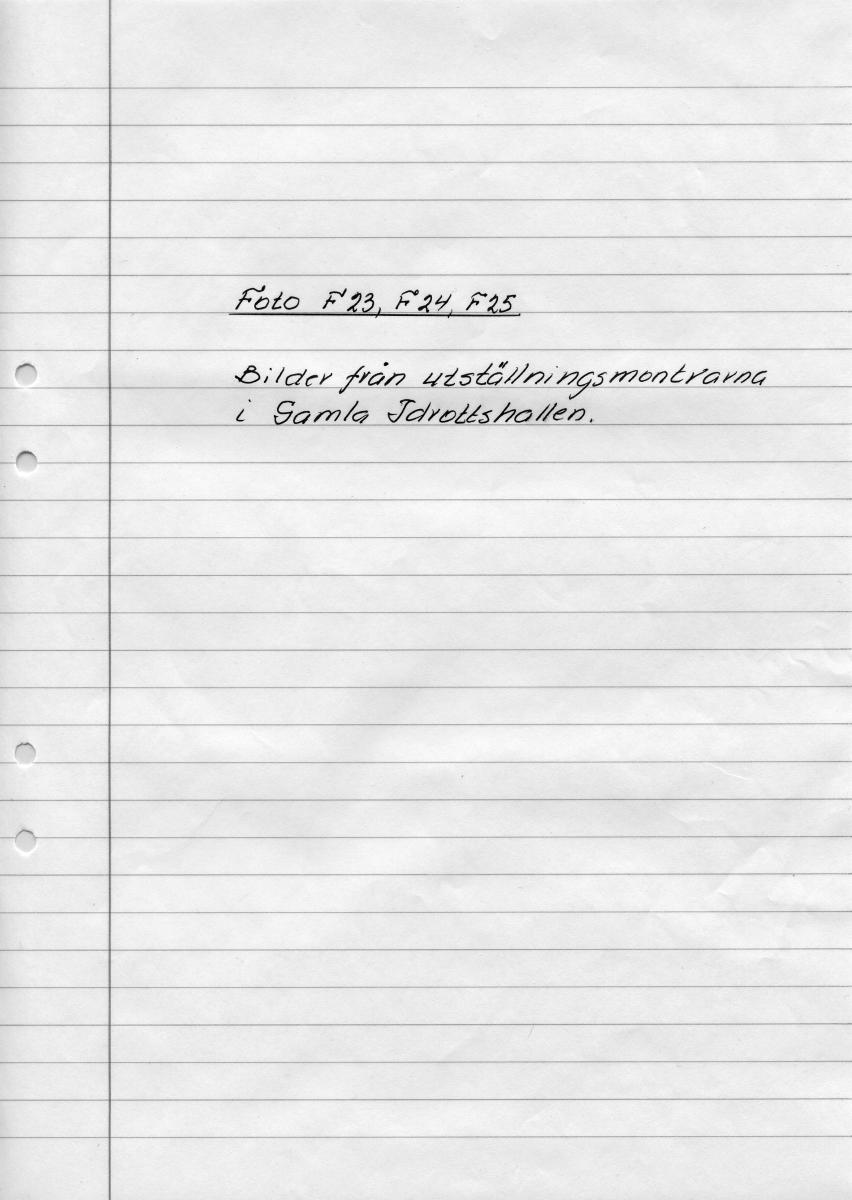 Foto F23, F24, F25
Bilder från utställningsmontrarna
i Gamla Idrottshallen.